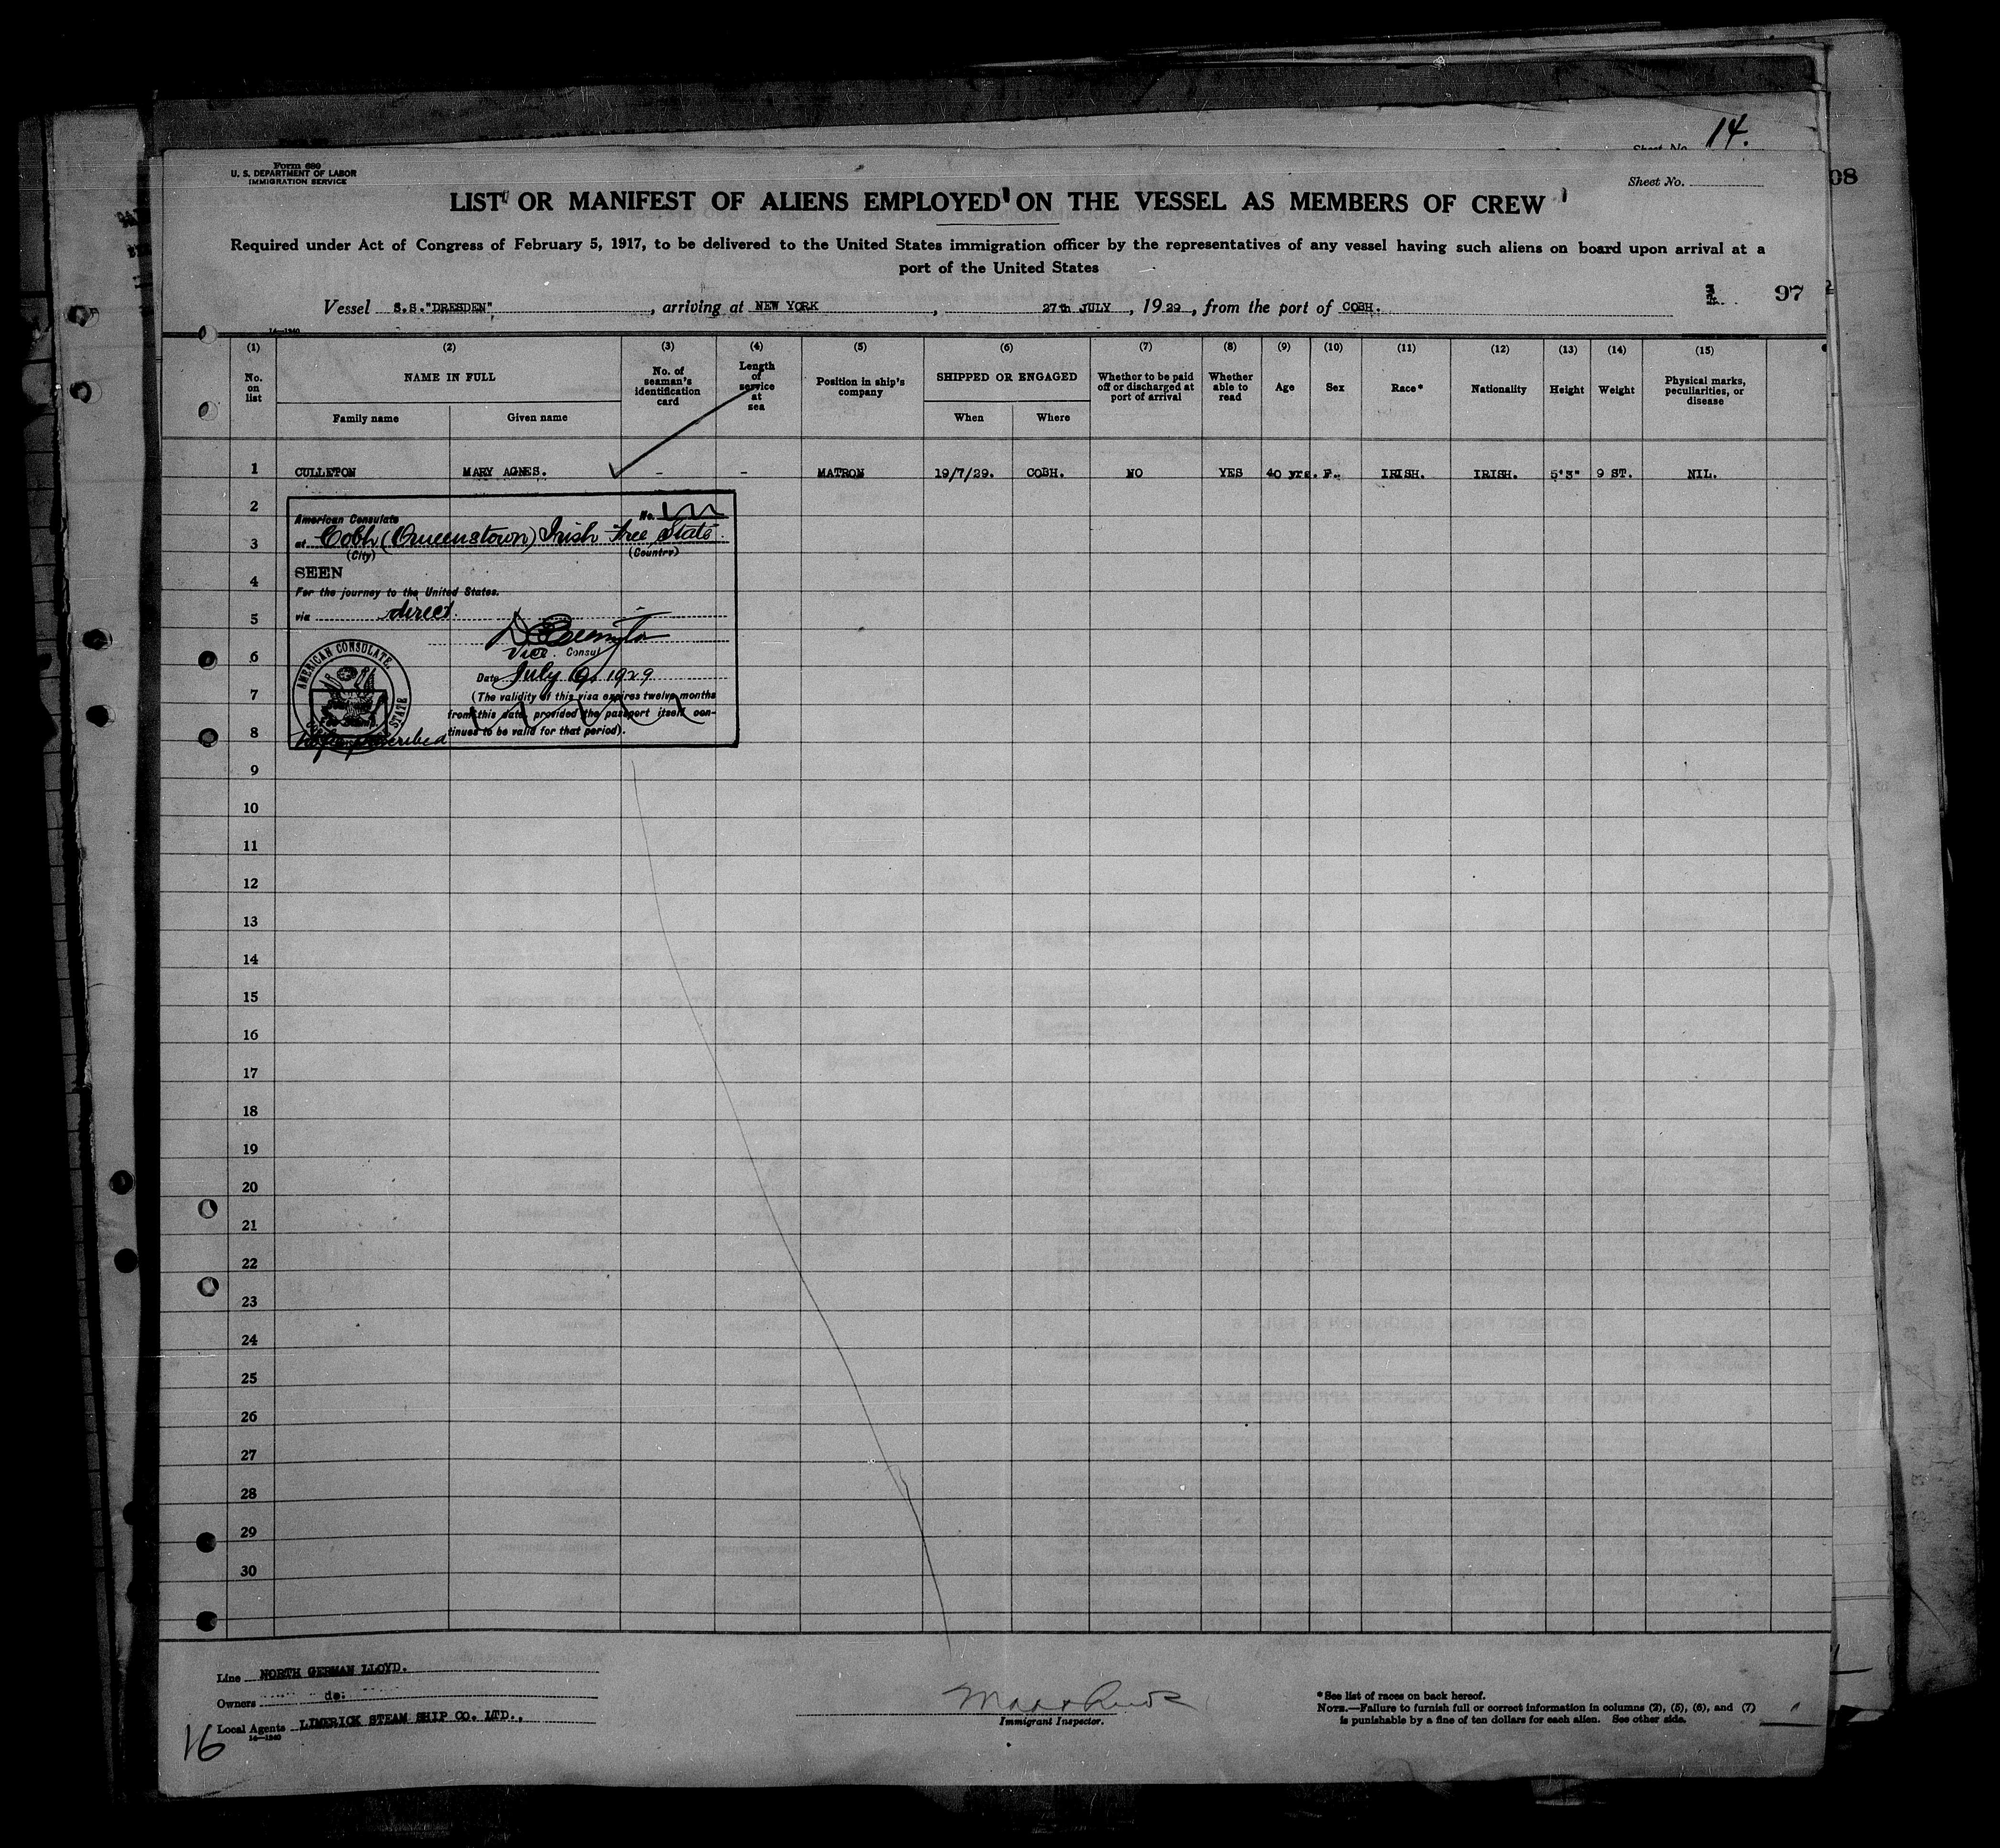 14.
Sheet No.
Form 680
U. S. DEPARTMENT OF LABOR
IMMIGRATION SERVICE
Sheet No.
08
LIST OR MANIFEST OF ALIENS EMPLOYED ON THE VESSEL AS MEMBERS OF CREW
Required under Act of Congress of February 5, 1917, to be delivered to the United States immigration officer by the representatives of any vessel having such aliens on board upon arrival at a
port of the United States
Vessel S.S."DRESDEN", , arriving at NEW YORK , 27th JULY , 1929 , from the port of COBH.
97
14—1240
(1) (2) (3) (4) (5) (6) (7) (8) (9) (10) (11) (12) (13) (14) (15)
No. on list
NAME IN FULL
Family name Given name
No. of seaman's identification card
Length of service at sea
Position in ship's company
SHIPPED OR ENGAGED
When Where
Whether to be paid off or discharged at port of arrival
Whether able to read
Age
Sex
Race*
Nationality
Height
Weight
Physical marks, peculiarities, or disease
1 CULLETON MARY AGNES. - - MATRON 19/7/29. COBH. NO YES 40 yrs. F. IRISH. IRISH. 5'3" 9 ST. NIL.
2
3
4
5
6
7
8
9
10
11
12
13
14
15
16
17
18
19
20
21
22
23
24
25
26
27
28
29
30
American Consulate No.
at Cobh (Queenstown) Irish Free State.
(City) (Country)
SEEN
For the journey to the United States.
via direct.
Vice Consul
Date July 19, 1929
(The validity of this visa expires twelve months
from this date, provided the passport itself con-
tinues to be valid for that period).
AMERICAN CONSULATE.
STATE
No fee prescribed
Line NORTH GERMAN LLOYD.
Owners do:
Local Agents LIMERICK STEAM SHIP CO. LTD.,
14—1240
16
Immigrant Inspector.
*See list of races on back hereof.
NOTE.—Failure to furnish full or correct information in columns (2), (5), (6), and (7)
is punishable by a fine of ten dollars for each alien. See other side.